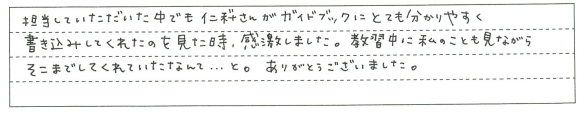 担当していただいた中でも仁科さんがガイドブックにとても分かりやすく
書き込みしてくれたのを見た時、感激しました。教習中に私のことも見ながら
そこまでしてくれていたなんて…と。ありがとうございました。